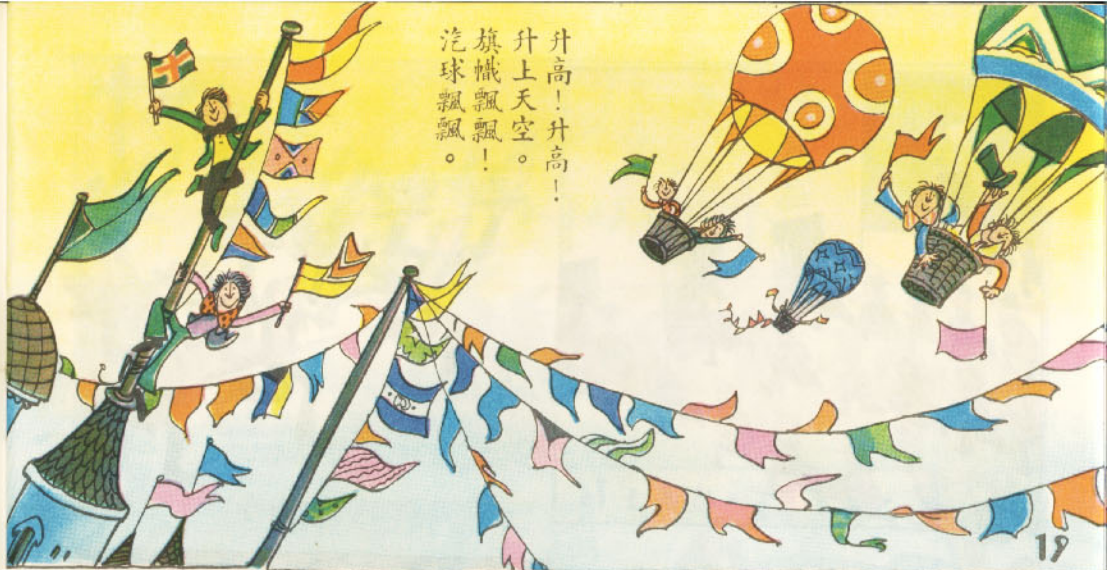 升高！升高！
升上天空。
旗幟飄飄！
汔球飄飄。
19